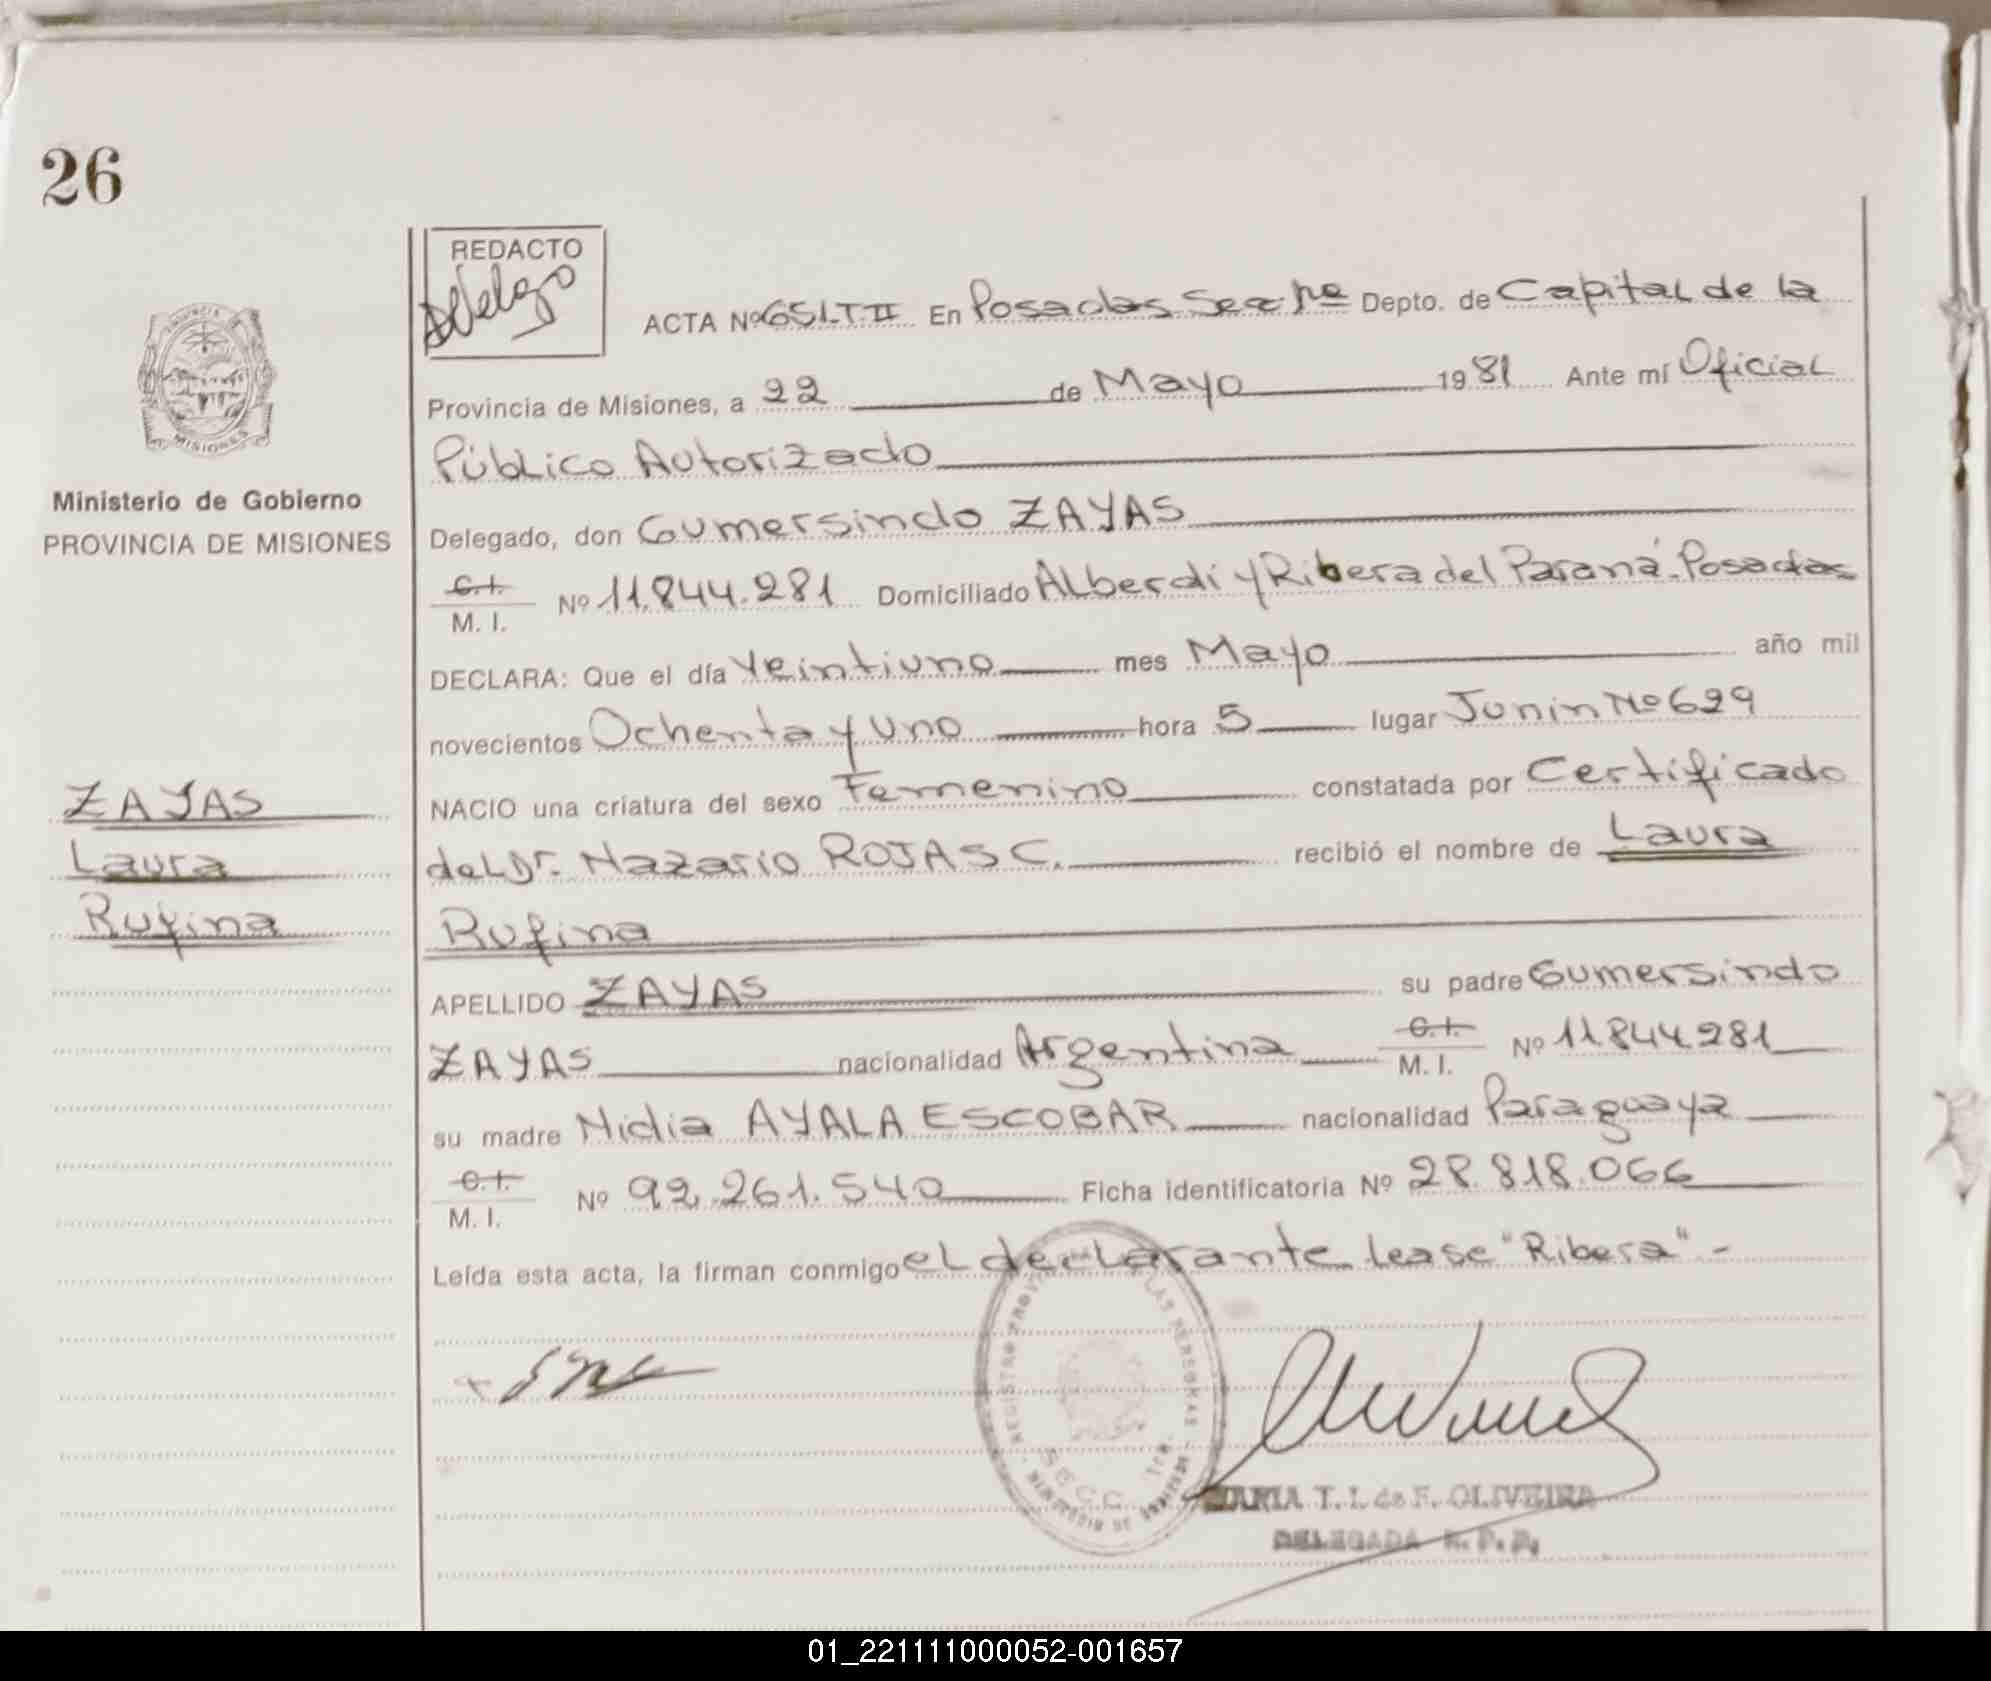 26
REDACTO
Delego
ACTA Nº 651-T II En Posadas Secc 1ra Depto. de Capital de la
Provincia de Misiones, a 22 de Mayo 1981 Ante mí Oficial
Público Autorizado
Ministerio de Gobierno
PROVINCIA DE MISIONES
Delegado, don Gumersindo ZAYAS
C.I. M. I. Nº 11.844.281 Domiciliado Alberdi y Ribera del Paraná-Posadas
DECLARA: Que el día Veintiuno mes Mayo año mil
novecientos Ochenta y Uno hora 5 lugar Junin Nº 629
ZAYAS
Laura
Rufina
NACIO una criatura del sexo Femenino constatada por Certificado
del Dr. Nazario ROJAS C. recibió el nombre de Laura
Rufina
APELLIDO ZAYAS su padre Gumersindo
ZAYAS nacionalidad Argentina C.I. M. I. Nº 11.844.281
su madre Nidia AYALA ESCOBAR nacionalidad Paraguaya
C.I. M. I. Nº 92.261.540 Ficha identificatoria Nº 28.818.066
Leída esta acta, la firman conmigo el declarante. lease "Ribera" -
MARIA T. I. de F. OLIVEIRA
DELEGADA R. P. P.
01_221111000052-001657